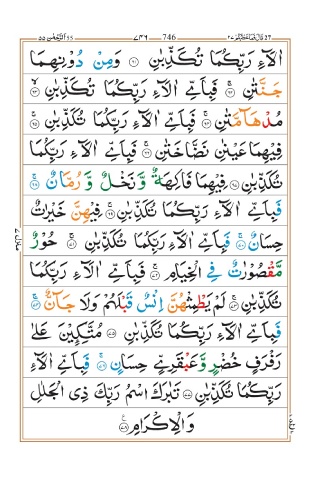 ٧٤٦ 746
اٰلَآءِ رَبِّكُمَا تُكَذِّبٰنِ ۝٦١ وَمِنْ دُوْنِهِمَا
جَنَّتٰنِ ۝٦٢ فَبِاَيِّ اٰلَآءِ رَبِّكُمَا تُكَذِّبٰنِ ۝٦٣
مُدْهَآمَّتٰنِ ۝٦٤ فَبِاَيِّ اٰلَآءِ رَبِّكُمَا تُكَذِّبٰنِ ۝٦٥
فِيْهِمَا عَيْنٰنِ نَضَّاخَتٰنِ ۝٦٦ فَبِاَيِّ اٰلَآءِ رَبِّكُمَا
تُكَذِّبٰنِ ۝٦٧ فِيْهِمَا فَاكِهَةٌ وَّنَخْلٌ وَّرُمَّانٌ ۝٦٨
فَبِاَيِّ اٰلَآءِ رَبِّكُمَا تُكَذِّبٰنِ ۝٦٩ فِيْهِنَّ خَيْرٰتٌ
حِسَانٌ ۝٧٠ فَبِاَيِّ اٰلَآءِ رَبِّكُمَا تُكَذِّبٰنِ ۝٧١ حُوْرٌ
مَّقْصُوْرٰتٌ فِي الْخِيَامِ ۝٧٢ فَبِاَيِّ اٰلَآءِ رَبِّكُمَا
تُكَذِّبٰنِ ۝٧٣ لَمْ يَطْمِثْهُنَّ اِنْسٌ قَبْلَهُمْ وَلَا جَآنٌّ ۝٧٤
فَبِاَيِّ اٰلَآءِ رَبِّكُمَا تُكَذِّبٰنِ ۝٧٥ مُتَّكِـِٕيْنَ عَلٰى
رَفْرَفٍ خُضْرٍ وَّعَبْقَرِيٍّ حِسَانٍ ۝٧٦ فَبِاَيِّ اٰلَآءِ
رَبِّكُمَا تُكَذِّبٰنِ ۝٧٧ تَبٰرَكَ اسْمُ رَبِّكَ ذِي الْجَلٰلِ
وَالْاِكْرَامِ ۝٧٨